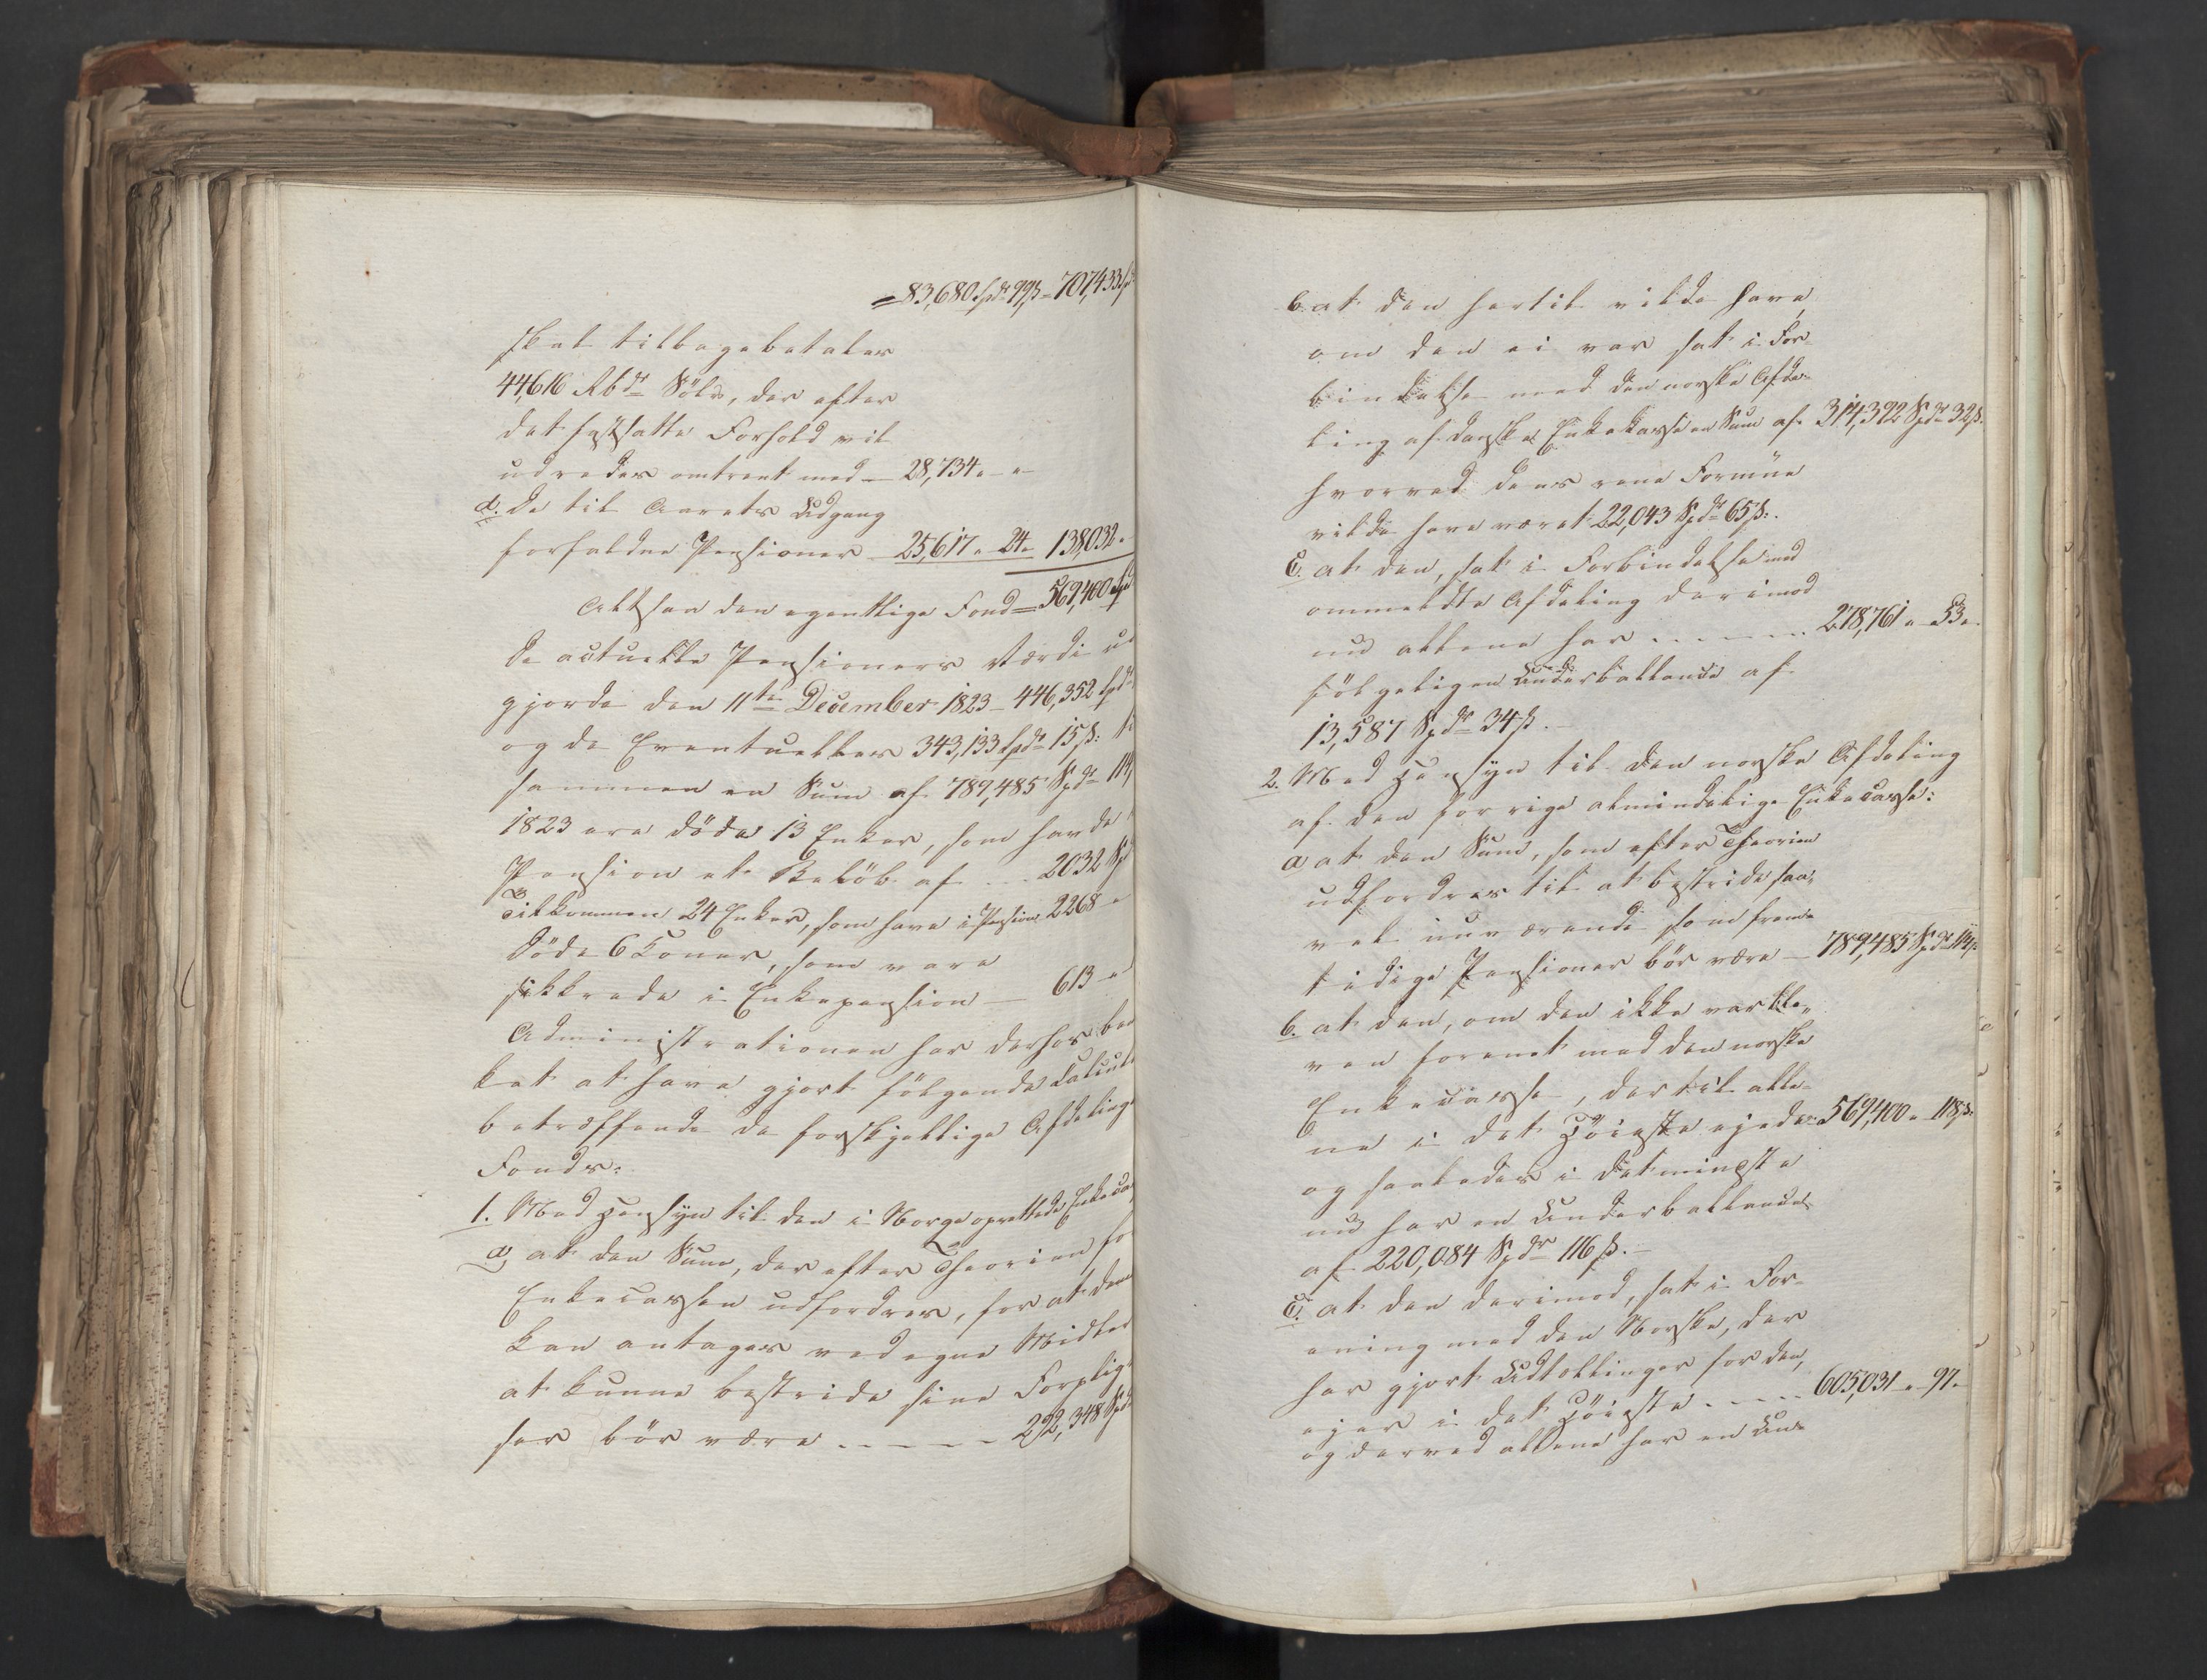 = 83,680 spdr 99 ß = 707,433 sp
skal tilbagebetales
44,616 Rbdr Sölv, der efter
det fastsatte Forhold vil
udredes omtrent med — 28,734 " "
d. de til Aarets Udgang
forfaldne Pensioner 25,617 " 24 " 138,032 "
Altsaa den egentlige Fond = 569,400 Sp
De actuelle Pensioners Værdi ud
gjorde den 11te December 1823 - 446,352 spdr
og de Eventuelles 343,133 spdr 15 ß: ti
sammen en Sum af 789,485 Spdr 114
1823 ere döde 13 Enker, som havde i
Pension et Belöb af - - - 2032 Sp
Tilkommen 24 Enker, som have i Pension 2268 "
Döde 6 Koner, som vare
sikkrede i Enkepension — 613 "
Administrationen har derhos bem
ket at have gjort fölgende Calcule
betræffende de forskjellige Afdelings
Fonds:
1. Med Hensyn til den i Norge oprettede Enkecas
a, at den Sum, der efter Theorien for
Enkecassen udfordres, for at den
kan antages ved egne Midler
at kunne bestride sine Forplig
ser bör være - - - - - 292,348 Spd
b. at den hertil vilde have,
om den ei var sat i For-
bindelse med den norske Afde-
ling af danske Enkekasse en Sum af 314,392 Spdr 32 ß.
hvorved dens rene Formue
vilde have været 22,043 Spdr 65 ß.
c. at den, sat i Forbindelse med
ommeldte Afdeling derimod
nu allene har - - - - - 278,761 " 53 "
fölgeligen Underballance af
13,587 Spdr 34 ß. —
2. Med Hensyn til den norske Afdeling
af den forrige almindelige Enkecasse:
a at den Sum, som efter Theorien
udfordres til at bestride saa-
vel nuværende som frem-
tidige Pensioner bör være — 789,485 Spdr 114 ß
b. at den, om den ikke var ble-
ven forenet med den norske
Enkecasse, dertil alle-
ne i det Höieste ejede 569,400 " 118 ß.
og saaledes i det mindste
nu har en Underballance
af 220,084 Spdr 116 ß. —
c. at den derimod, sat i For-
ening med den Norske, der
har gjort Udtællinger for den,
ejer i det Höieste - - - - 605,031 " 97 "
og derved allene har en Un-